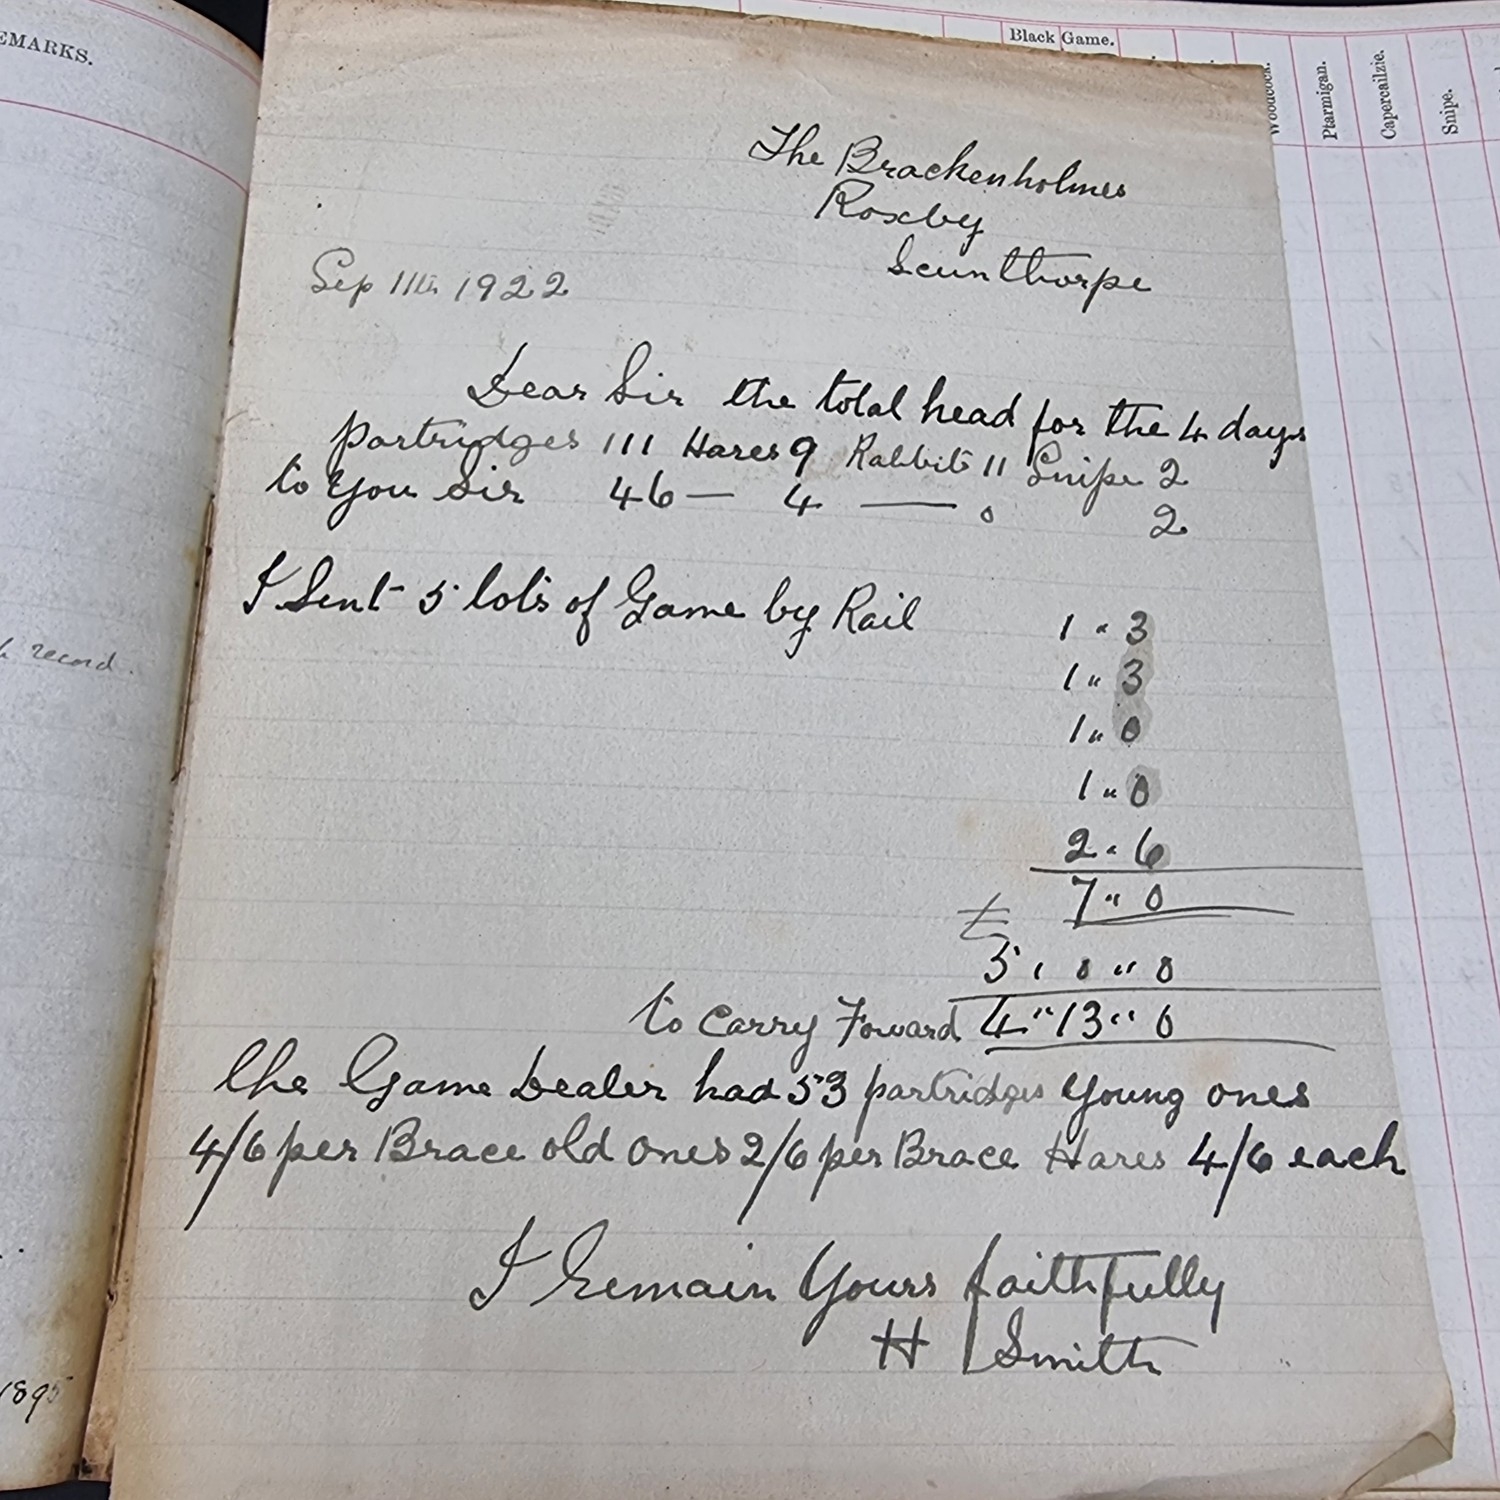 EMARKS.
record.
1895
Black Game.
Woodcock.
Ptarmigan.
Capercailzie.
Snipe.
The Brackenholmes
Roxby
Scunthorpe
Sep 11th 1922
Dear Sir the total head for the 4 days
partridges 111 Hares 9 Rabbits 11 Snipe 2
to You Sir 46 — 4 — 0 2
I Sent 5 lots of Game by Rail
1 " 3
1 " 3
1 " 0
1 " 0
2 " 6
7 " 0
£
5 " 0 " 0
to Carry Forward 4 " 13 " 0
the Game Dealer had 53 partridges Young ones
4/6 per Brace old ones 2/6 per Brace Hares 4/6 each
I Remain Yours faithfully
H Smith